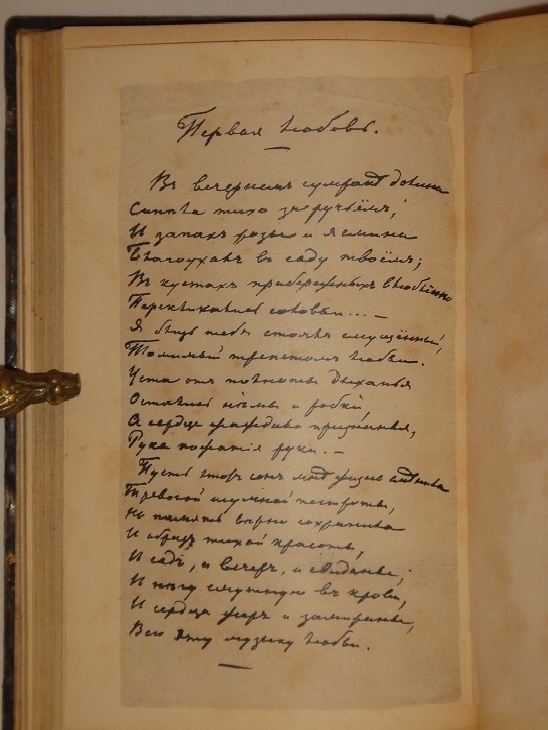 Первая любовь.
Въ вечернемъ сумракѣ долина
Синѣла тихо за ручьёмъ,
И запахъ розы и ясмина
Благоухалъ въ саду твоёмъ;
Въ кустахъ прибережныхъ влюблённо
Перекликались соловьи... —
Я близъ тебя стоялъ смущённый,
Томимый трепетомъ любви.
Уста отъ полноты дыханья
Остались нѣмы и робки,
А сердце жаждало признанья,
Рука пожатія руки. —
Пусть этотъ сонъ мнѣ жизнь смѣнила
Тревогой шумной пестроты,
Но память вѣрно сохранила
И образъ тихой красоты,
И садъ, и вечеръ, и свиданье,
И нѣгу смутную въ крови,
И сердца жаръ и замиранье,
Всю эту музыку любви.